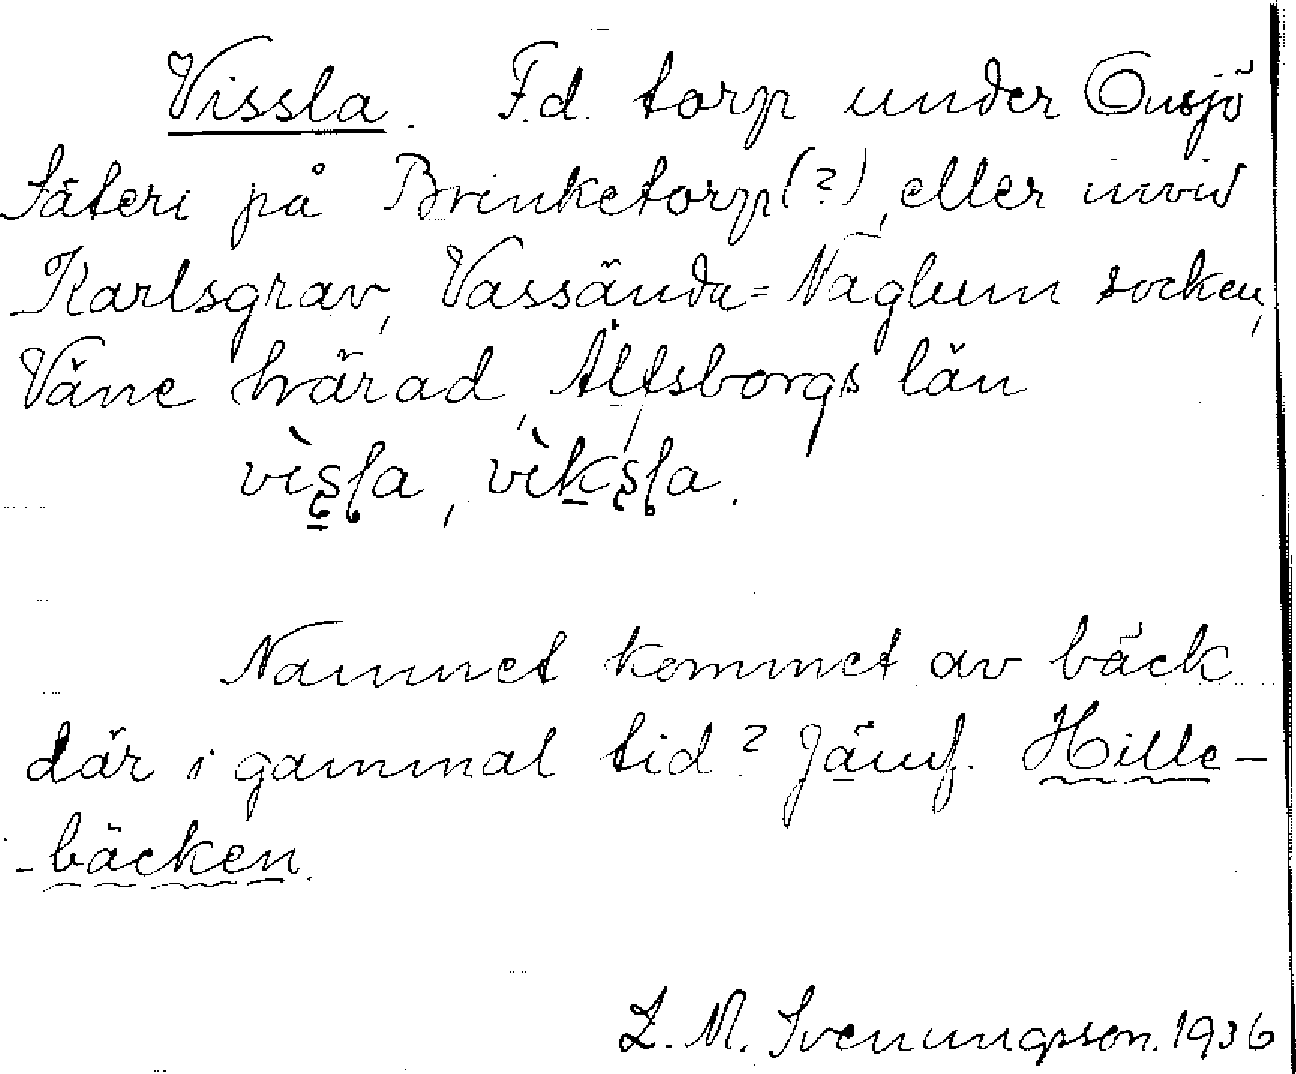 Vissla. F.d. torp under Onsjö
Säteri på Brinketorp(?), eller invid
Karlsgrav, Vassända=Naglum socken,
Väne härad, Älfsborgs län
vìsla, vìksla.
Namnet kommet av bäck
där i gammal tid? Jämf. Hille-
-bäcken.
L. M. Svenungsson. 1936